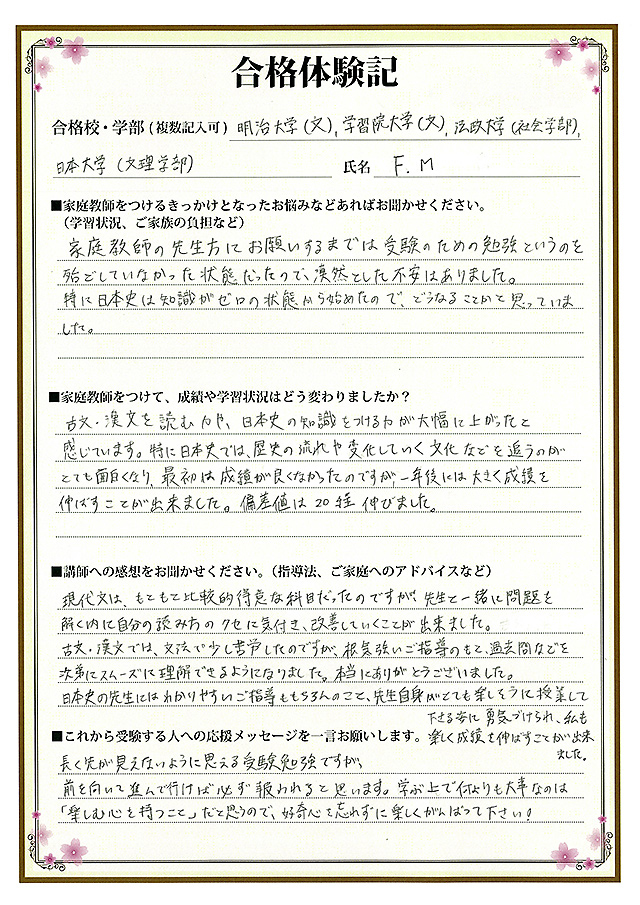 合格体験記
合格校・学部(複数記入可) 明治大学(文), 学習院大学(文), 法政大学(社会学部),
日本大学(文理学部) 氏名 F. M
■家庭教師をつけるきっかけとなったお悩みなどあればお聞かせください。
(学習状況、ご家族の負担など)
家庭教師の先生方にお願いするまでは受験のための勉強というのを
殆どしていなかった状態だったので、漠然とした不安はありました。
特に日本史は知識がゼロの状態から始めたので、どうなることかと思っていま
した。
■家庭教師をつけて、成績や学習状況はどう変わりましたか?
古文・漢文を読む力や、日本史の知識をつける力が大幅に上がったと
感じています。特に日本史では、歴史の流れや変化していく文化などを追うのが
とても面白くなり、最初は成績が良くなかったのですが一年後には大きく成績を
伸ばすことが出来ました。偏差値は20程伸びました。
■講師への感想をお聞かせください。(指導法、ご家庭へのアドバイスなど)
現代文は、もともと比較的得意な科目だったのですが、先生と一緒に問題を
解く内に自分の読み方のクセに気付き、改善していくことが出来ました。
古文・漢文では、文法で少し苦労したのですが、根気強いご指導のもと、過去問などを
次第にスムーズに理解できるようになりました。本当にありがとうございました。
日本史の先生にはわかりやすいご指導ももちろんのこと、先生自身がとても楽しそうに授業して
下さる姿に勇気づけられ、私も
楽しく成績を伸ばすことが出来
ました。
■これから受験する人への応援メッセージを一言お願いします。
長く先が見えないように思える受験勉強ですが、
前を向いて進んで行けば必ず報われると思います。学ぶ上で何よりも大事なのは
「楽しむ心を持つこと」だと思うので、好奇心を忘れずに楽しくがんばって下さい!